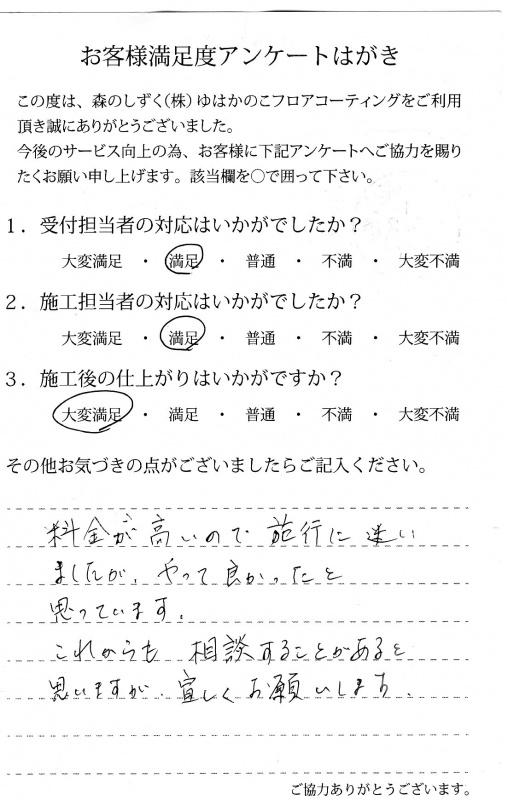 お客様満足度アンケートはがき
この度は、森のしずく(株)ゆはかのこフロアコーティングをご利用
頂き誠にありがとうございました。
今後のサービス向上の為、お客様に下記アンケートへご協力を賜り
たくお願い申し上げます。該当欄を○で囲って下さい。
1．受付担当者の対応はいかがでしたか？
大変満足 ・ 満足 ・ 普通 ・ 不満 ・ 大変不満
2．施工担当者の対応はいかがでしたか？
大変満足 ・ 満足 ・ 普通 ・ 不満 ・ 大変不満
3．施工後の仕上がりはいかがですか？
大変満足 ・ 満足 ・ 普通 ・ 不満 ・ 大変不満
その他お気づきの点がございましたらご記入ください。
料金が高いので施行に迷い
ましたが、やって良かったと
思っています。
これからも 相談することがあると
思いますが、宜しくお願いします。
ご協力ありがとうございます。